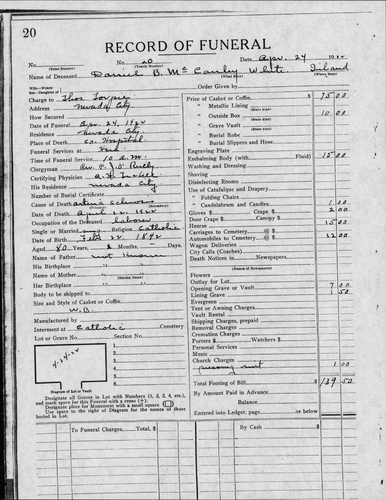 20
RECORD OF FUNERAL
No. 20 Date, Apr. 24 1922
(Total Number) (Yearly Number)
Name of Deceased Daniel B. McCauley White Ireland
(What Race) (Where Born)
Wife—Widow
Son—Daughter of
Order Given by
Charge to
Address Nevada City
How Secured
Date of Funeral Apr. 24, 1922
Residence Nevada City
Place of Death Co. Hospital
Funeral Services at
Time of Funeral Service 10 A.M.
Clergyman Rev. C. J. O'Reilly
Certifying Physician
His Residence Nevada City
Number of Burial Certificate
Cause of Death
(Primary) (Secondary)
Date of Death April 22 1922
Occupation of the Deceased laborer
Single or Married Religion Catholic
Date of Birth Feb 22 1842
Aged 40 Years 2 Months, Days.
Name of Father not known
His Birthplace "
Name of Mother "
(Maiden Name)
Her Birthplace "
Body to be shipped to
Size and Style of Casket or Coffin
W. B.
Manufactured by
Interment at Catholic Cemetery
Lot or Grave No. Section No.
4-24-22
1
2
3
4
5
6
Diagram of Lot or Vault
Designate all Graves in Lot with Numbers (1, 2, 3, 4, etc.),
and mark space for this Funeral with a cross (+).
Designate place for Monument with a small square
Use space to right of Diagram for the names of those
buried in Lot.
Price of Casket or Coffin $ 75 00
" Metallic Lining
(State Kind)
" Outside Box 10 00
(State Kind)
" Grave Vault
(State Kind)
" Burial Robe
" Burial Slippers and Hose
Engraving Plate
Embalming Body (with Fluid) 15 00
Washing and Dressing
Shaving
Disinfecting Rooms
Use of Catafalque and Drapery
" Folding Chairs
" Candelabrum and Candles 1 00
Gloves $ Crape $ 2 00
Door Crape $ Canopy $
Hearse 15 00
Carriages to Cemetery @ $
Automobiles to Cemetery @ $ 12 00
Wagon Deliveries
City Calls (Coaches)
Death Notices in Newspapers
(Names of Newspapers)
Flowers
Outlay for Lot
Opening Grave or Vault 7 00
Lining Grave 1 50
Evergreen
Tent or Awning Charges
Vault Rental
Shipping Charges, prepaid
Removal Charges
Cremation Charges
Porters $ Watchers $
Personal Services
Music
Church Charges 1 00
Total Footing of Bill $ 139 50
By Amount Paid in Advance
Balance
Entered into Ledger, page or below
To Funeral Charges, $ By Cash $